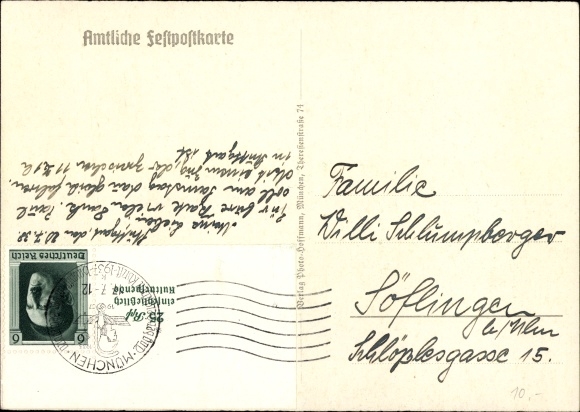 Amtliche Festpostkarte
Stuttgart, den 20.7.37.
Meine Lieben!
Für Eure Karte vielen Dank.
will am Samstag
mit einem Zug, der zwischen 11 &
in Stuttgart ist.
Deutsches Reich
6 6
25 Rpf
einschließlich
Kulturspende
MÜNCHEN
Verlag Photo-Hoffmann, München, Theresienstraße 74
Familie
Willi Schlumpberger
Söflingen
b/Ulm
Schlößlesgasse 15.
10,-